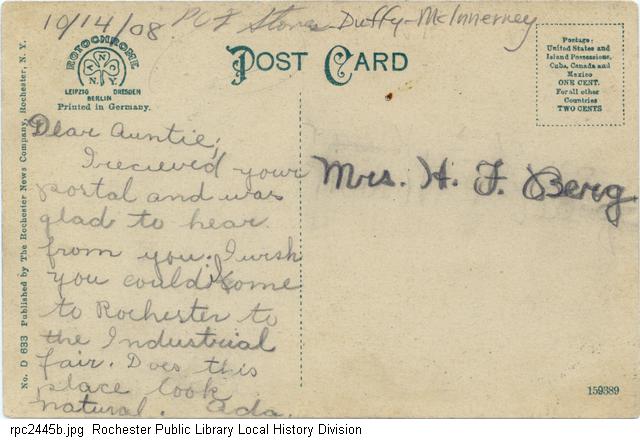 10/14/08 PCF Stores-Duffy-McInnerney
ROTOCHROME
A N.
N.Y.
LEIPZIG DRESDEN
BERLIN
Printed in Germany.
POST CARD
Postage:
United States and
Island Possessions,
Cuba, Canada and
Mexico
ONE CENT.
For all other
Countries
TWO CENTS
Dear Auntie;
I recieved your
postal and was
glad to hear
from you. I wish
you could come
to Rochester to
the Industrial
fair. Does this
place look
natural. Ada.
Mrs. H. F. Berg.
No. D 633 Published by The Rochester News Company, Rochester, N. Y.
159389
rpc2445b.jpg Rochester Public Library Local History Division